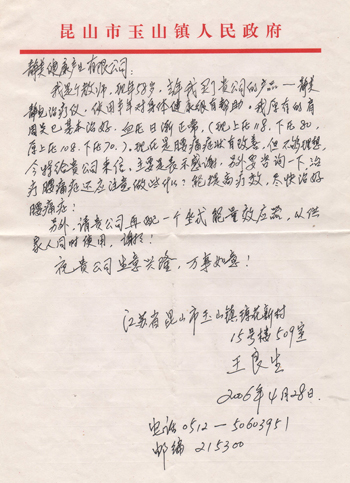 昆山市玉山镇人民政府
静美健康产业有限公司:
我是个教师,现年58岁,去年我买了贵公司的产品——静美
静电治疗仪,使用半年对身体健康很有帮助,我原有的肩
周炎已基本治好,血压日渐正常,(现上压118,下压80,
原上压108,下压70,)现在是腰痛症状有改善,但不够理想,
今特给贵公司来信,主要是表示感谢,另外是咨询一下,治
疗腰痛症还应注意做些什么?能提高疗效,尽快治好
腰痛症!
另外,请贵公司再配一个坐式能量效应器,以供
家人同时使用,谢谢!
祝贵公司生意兴隆,万事如意!
江苏省昆山市玉山镇琼花新村
15号楼509室
王良生
2006年4月28日.
电话0512—50603951
邮编215300